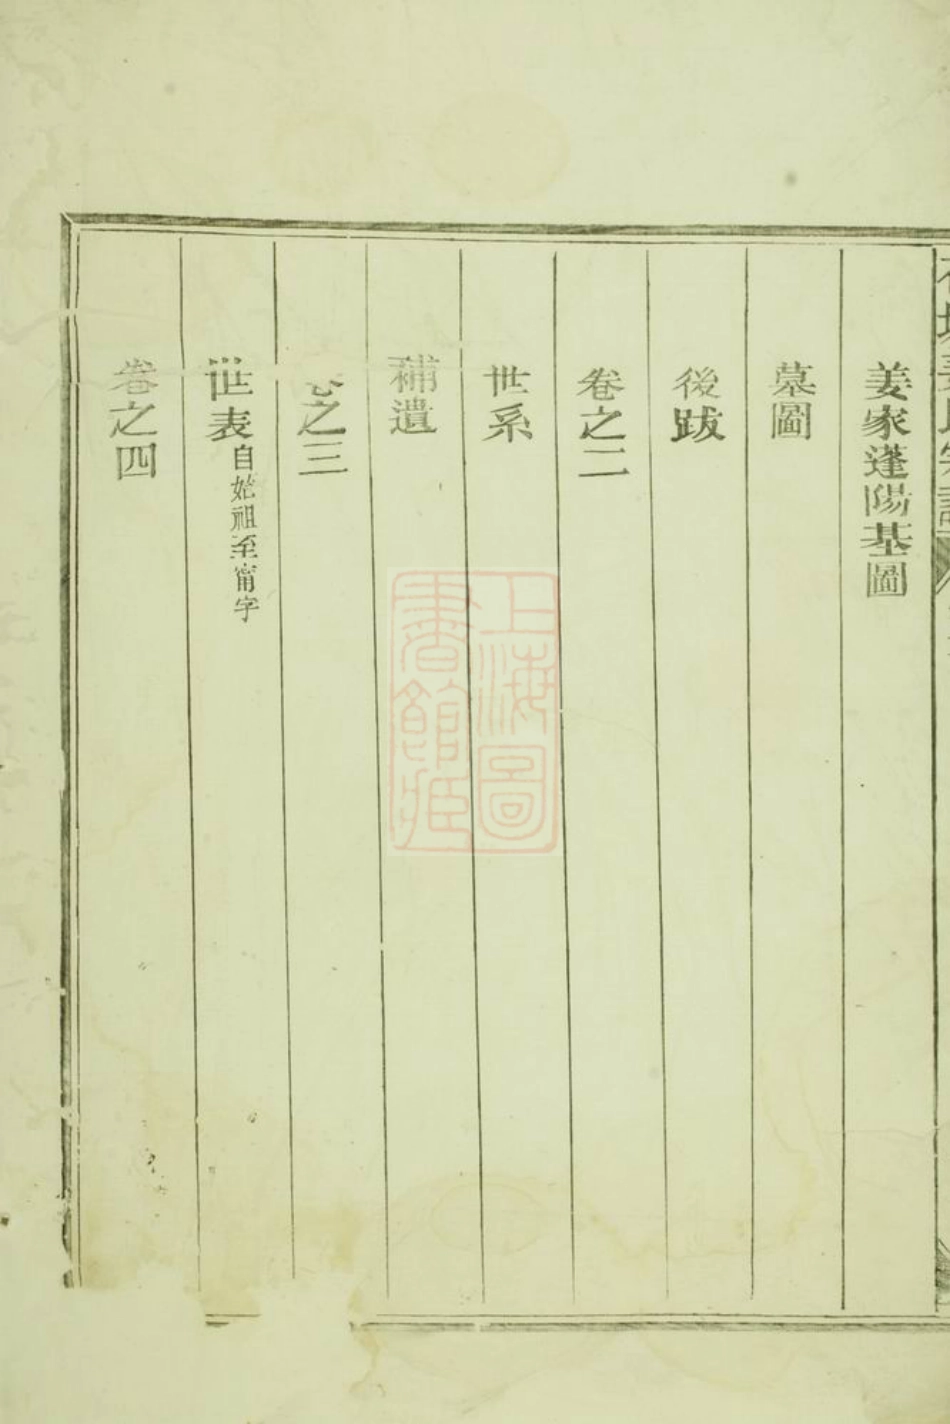 姜家蓬陽基圖
墓圖
後跋
卷之二
世系
補遺
之三
世表自始祖至甯字
卷之四
上海圖書館藏